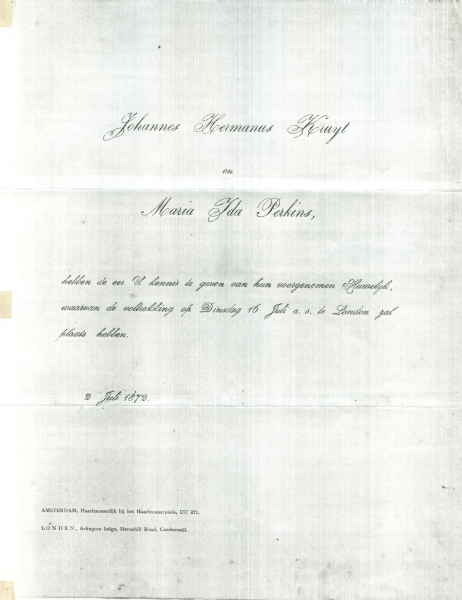 Johannes Hermanus Kruyt
en
Maria Ida Perkins,
hebben de eer U kennis te geven van hun voorgenomen Huwelijk,
waarvan de voltrekking op Dinsdag 16 Juli a. s. te Londen zal
plaats hebben.
2 Juli 1872.
AMSTERDAM, Haarlemmerdijk bij het Haarlemmerplein, UU 271.
LONDEN, Arlington lodge, Hernehill Road, Camberwell.